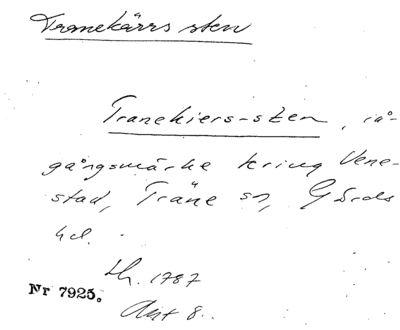 Tranekärrs sten
Tranekiers-sten, rå-
gångsmärke kring Vene-
stad, Träne sn, Gärds
hd.
Lh. 1787
Nr 7925.
Akt 8.